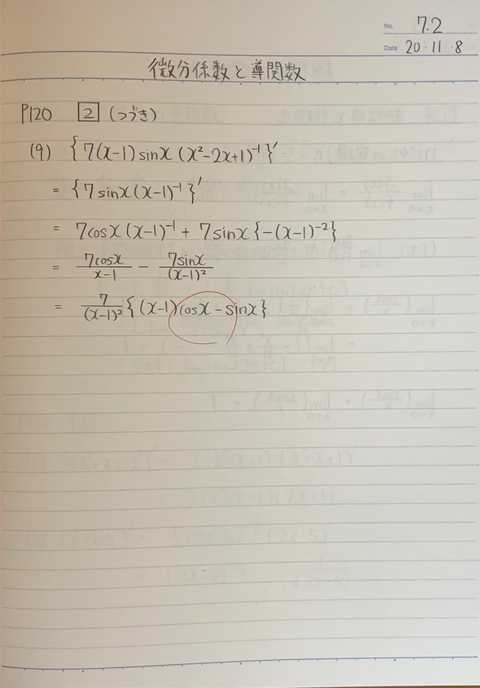 No. 7.2
Date 20・11・8
微分係数と導関数
P120 2 (つづき)
(9) {7(x-1)sinx(x²-2x+1)⁻¹}'
= {7sinx(x-1)⁻¹}'
= 7cosx(x-1)⁻¹ + 7sinx{-(x-1)⁻²}
= 7cosx/(x-1) - 7sinx/(x-1)²
= 7/(x-1)² {(x-1)cosx-sinx}